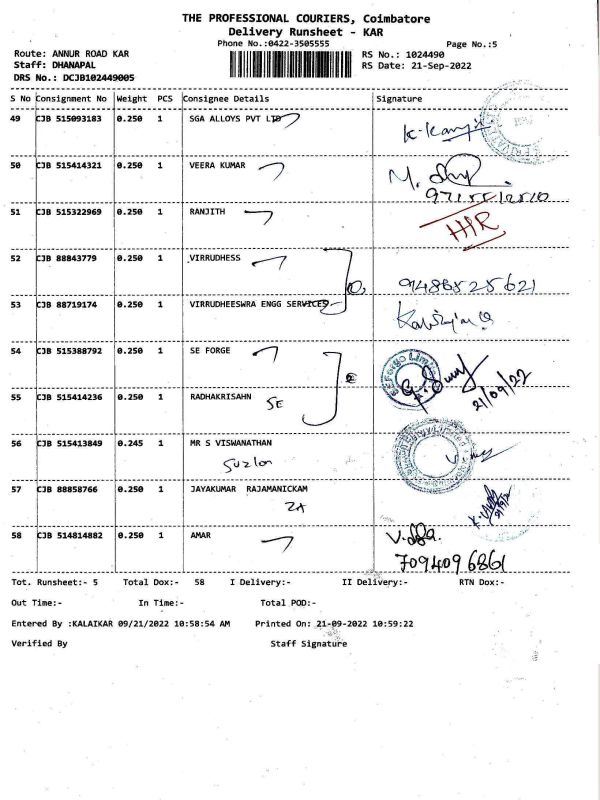 THE PROFESSIONAL COURIERS, Coimbatore
Delivery Runsheet - KAR
Phone No.:0422-3505555
Page No.:5
Route: ANNUR ROAD KAR
RS No.: 1024490
Staff: DHANAPAL
RS Date: 21-Sep-2022
DRS No.: DCJB102449005
S No Consignment No Weight PCS Consignee Details Signature
49 CJB 515093183 0.250 1 SGA ALLOYS PVT LTD
50 CJB 515414321 0.250 1 VEERA KUMAR
51 CJB 515322969 0.250 1 RANJITH
52 CJB 88843779 0.250 1 VIRRUDHESS
53 CJB 88719174 0.250 1 VIRRUDHEESWRA ENGG SERVICES
54 CJB 515388792 0.250 1 SE FORGE
21/09/22
55 CJB 515414236 0.250 1 RADHAKRISAHN SE
56 CJB 515413849 0.245 1 MR S VISWANATHAN
Suzlon
57 CJB 88858766 0.250 1 JAYAKUMAR RAJAMANICKAM
58 CJB 514814882 0.250 1 AMAR
7094096861
Tot. Runsheet:- 5 Total Dox:- 58 I Delivery:- II Delivery:- RTN Dox:-
Out Time:- In Time:- Total POD:-
Entered By :KALAIKAR 09/21/2022 10:58:54 AM Printed On: 21-09-2022 10:59:22
Verified By Staff Signature